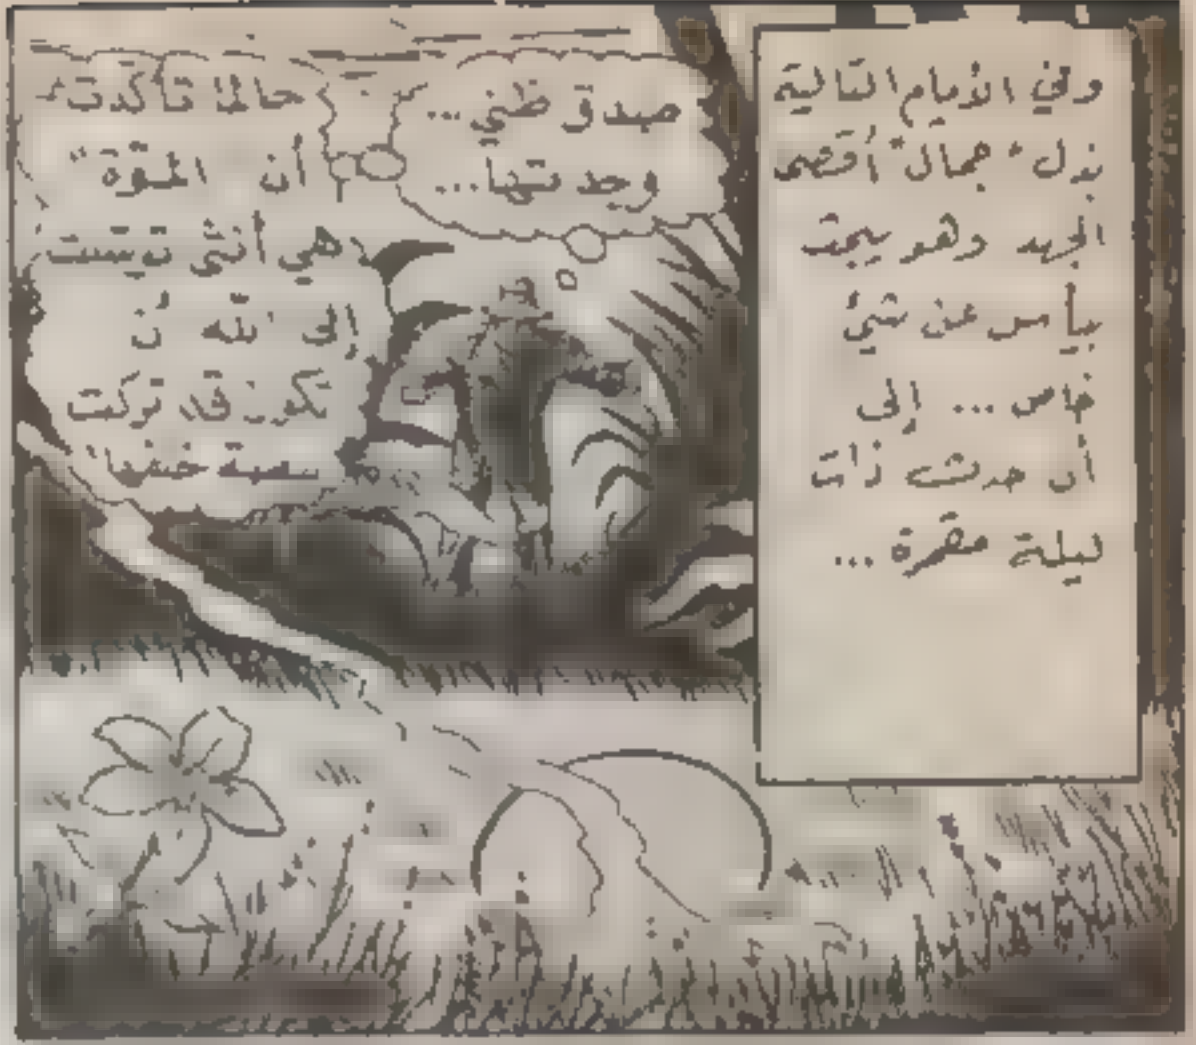 وفي الأيام التالية
بذل "جمال" أقصى
الجهد وهو يبحث
بيأس عن شيء
خاص ... إلى
أن حدث ذات
ليلة مقمرة ...
صدق ظني ...
وجدتها ...
حالما تأكدت
أن "القوة"
هي أنثى توسلت
إلى الله أن
تكون قد تركت
بيضة خلفها